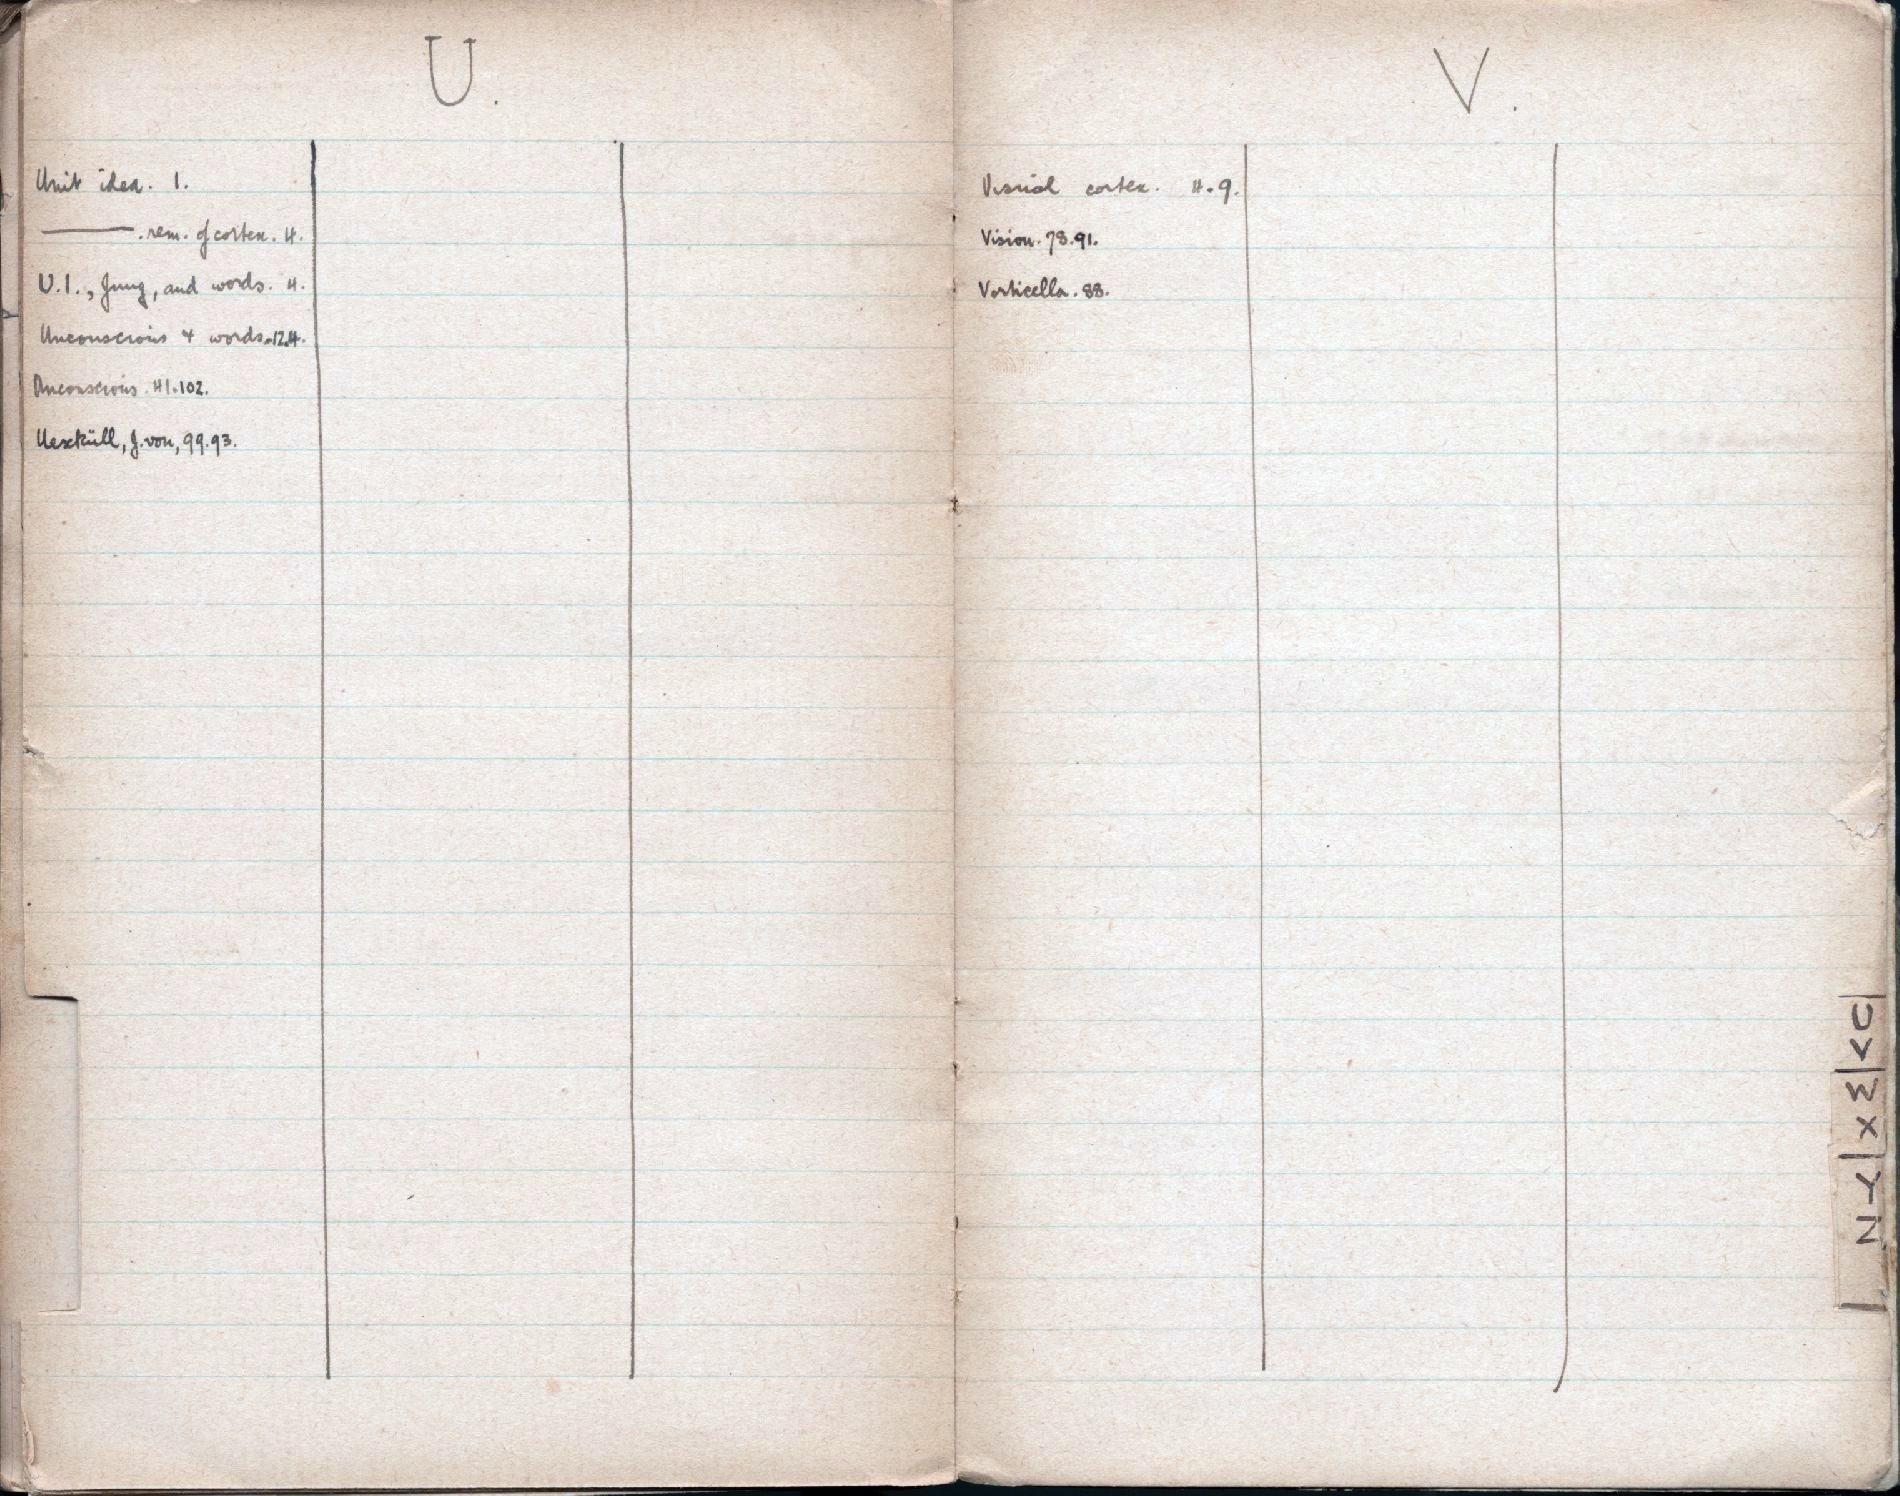 U.
Unit idea. 1.
——— . rem. of cortex. 4.
U.I., Jung, and words. 4.
Unconscious & words. 12.4.
Unconscious. 41.102.
Uexküll, J. von, 99.93.
V.
Visual cortex. 4.9.
Vision. 78.91.
Vorticella. 88.
U
V
W
X
Y
Z